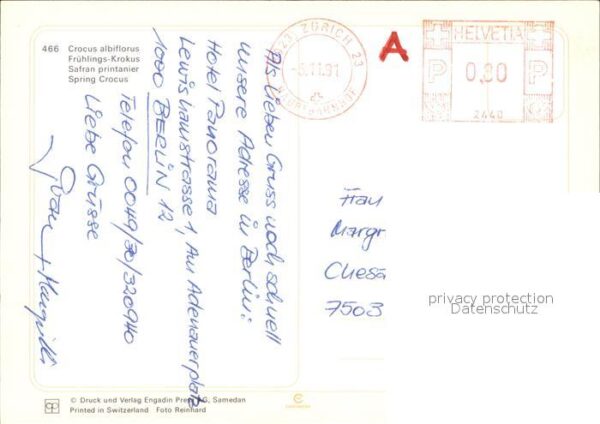 466 Crocus albiflorus
Frühlings-Krokus
Safran printanier
Spring Crocus
Als lieben Gruss noch schnell
unsere Adresse in Berlin:
Hotel Panorama
Lewishamstrasse 1, Am Adenauerplatz
1000 BERLIN 12
Telefon 0049/30/320940
Liebe Grüsse
8023 ZÜRICH 23
-5.11.91
A
HELVETIA
P 0,80 P
2440
Frau
Margr
Chesa
7503
privacy protection
Datenschutz
© Druck und Verlag Engadin Press AG, Samedan
Printed in Switzerland Foto Reinhard